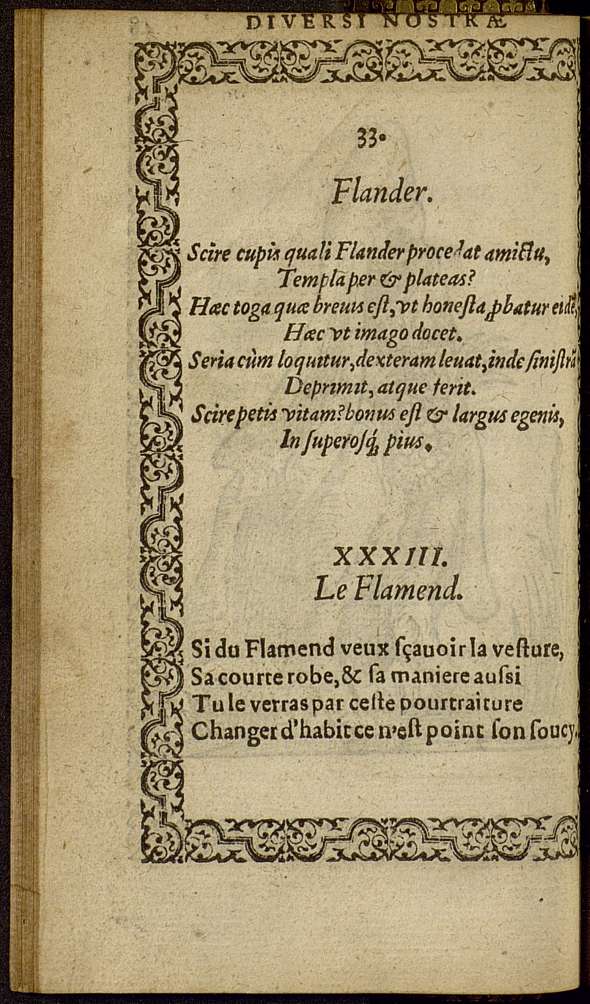 DIVERSI NOSTRÆ
33.
Flander.
Scire cupis quali Flander procedat amictu,
Templa per & plateas?
Hæc toga quæ breuis est, vt honesta ꝓbatur eidē,
Hæc vt imago docet.
Seria cùm loquitur, dexteram leuat, inde sinistrā
Deprimit, atque ferit.
Scire petis vitam? bonus est & largus egenis,
In superosq́ꝫ pius.
XXXIII.
Le Flamend.
Si du Flamend veux sçauoir la vesture,
Sa courte robe, & sa maniere aussi
Tu le verras par ceste pourtraiture
Changer d'habit ce n'est point son soucy.